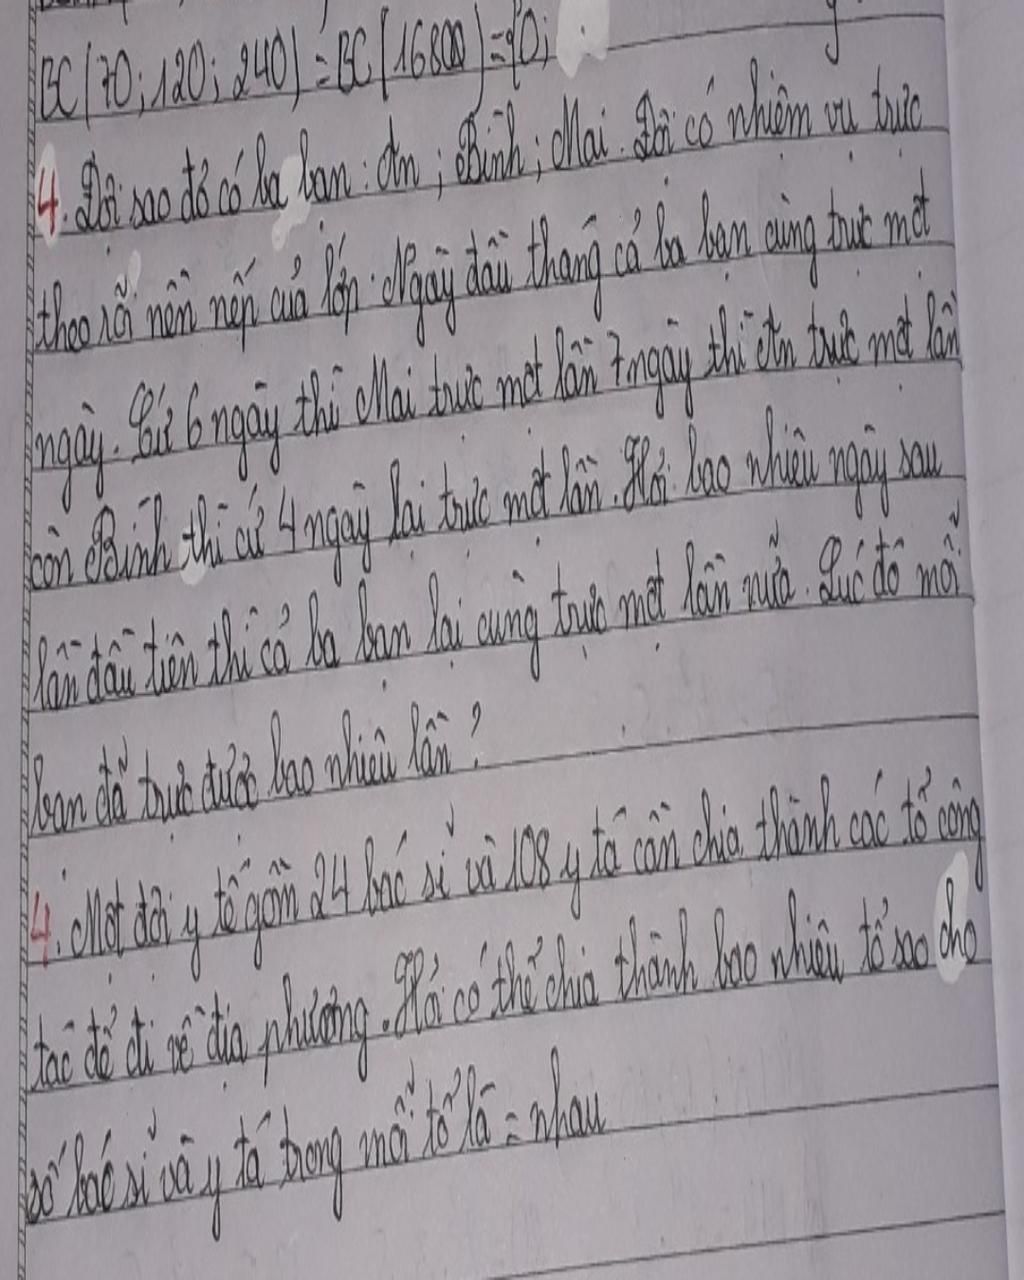 BC(70; 120; 240) = BC(16800) = {0;
4. Đội sao đỏ có ba bạn: An; Bình; Mai. Đội có nhiệm vụ trực
theo rõi nền nếp của lớp. Ngày đầu tháng cả ba bạn cùng trực một
ngày. Cứ 6 ngày thì Mai trực một lần 7 ngày thì An trực một lần
còn Bình thì cứ 4 ngày lại trực một lần. Hỏi bao nhiêu ngày sau
lần đầu tiên thì cả ba bạn lại cùng trực một lần nữa. Lúc đó mỗi
bạn đã trực được bao nhiêu lần?
4. Một đội y tế gồm 24 bác sĩ và 108 y tá cần chia thành các tổ công
tác để đi về địa phương. Hỏi có thể chia thành bao nhiêu tổ sao cho
số bác sĩ và y tá trong mỗi tổ là = nhau